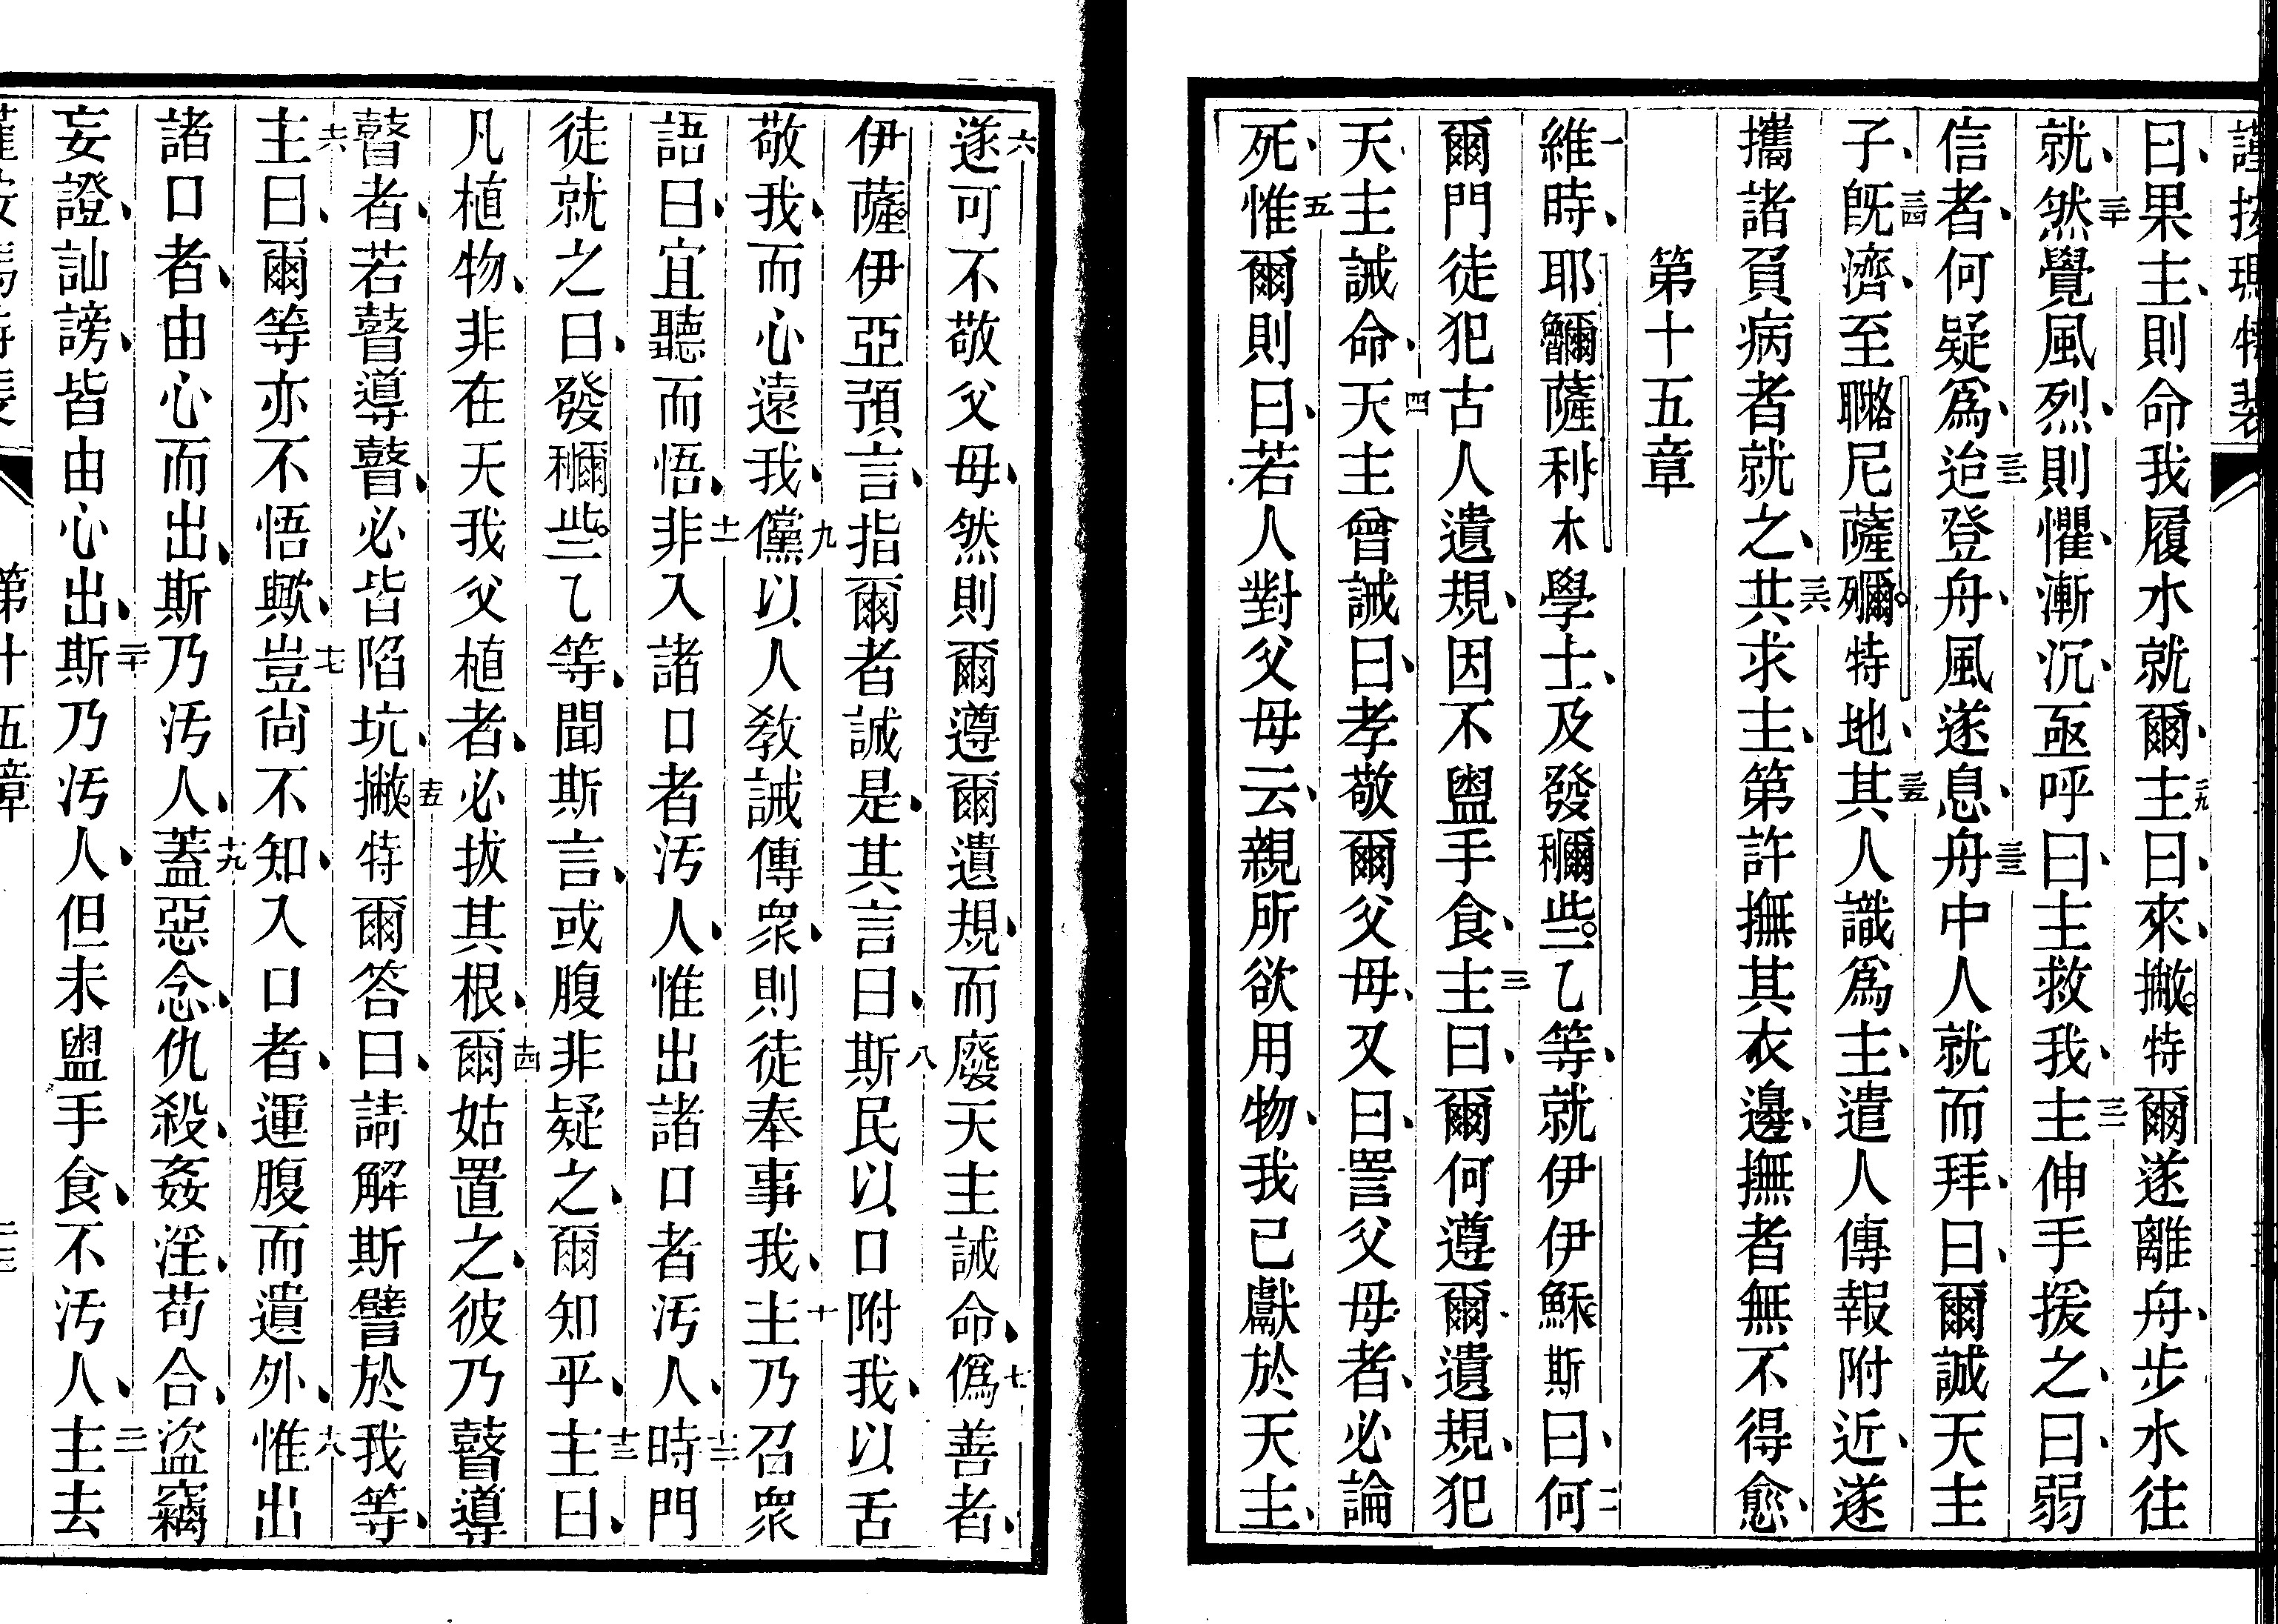 曰、果主、則命我履水就爾、二九主曰、來、撇特爾遂離舟、步水往
就、三十然覺風烈、則懼、漸沉、亟呼曰、主救我、三一主伸手援之、曰、弱
信者、何疑爲、三二迨登舟、風遂息、三三舟中人就而拜、曰、爾誠天主
子、三四旣濟、至聮尼薩特地、三五其人識爲主、遣人傳報附近、遂
攜諸負病者就之、三六共求主、第許撫其衣邊、撫者無不得愈、
第十五章
一維時、耶薩利木學士、及發些乙等、就伊伊穌斯曰、二何
爾門徒犯古人遺規、因不盥手食、三主曰、爾何遵爾遺規、犯
天主誡命、四天主曾誡曰、孝敬爾父母、又曰、詈父母者、必論
死、五惟爾則曰、若人對父母云、親所欲用物、我已獻於天主、
六遂可不敬父母、然則爾遵爾遺規、而廢天主誡命、七僞善者、
伊薩伊亞預言、指爾者誠是、其言曰、八斯民以口附我、以舌
敬我、而心遠我、九儻以人敎誡傳衆、則徒奉事我、十主乃召衆
語曰、宜聽而悟、十一非入諸口者汚人、惟出諸口者汚人、十二時門
徒就之曰、發些乙等、聞斯言、或腹非疑之、爾知乎、十三主曰、
凡植物、非在天我父植者、必拔其根、十四爾姑置之、彼乃瞽導
瞽者、若瞽導瞽、必皆陷坑、十五撇特爾答曰、請解斯譬於我等、
十六主曰、爾等亦不悟歟、十七豈尙不知、入口者、運腹而遺外、十八惟出
諸口者、由心而出、斯乃汚人、十九蓋惡念、仇殺、姦淫、苟合、盜竊
妄證、訕謗、皆由心出、二十斯乃汚人、但未盥手食、不汚人、二一主去
第十五章